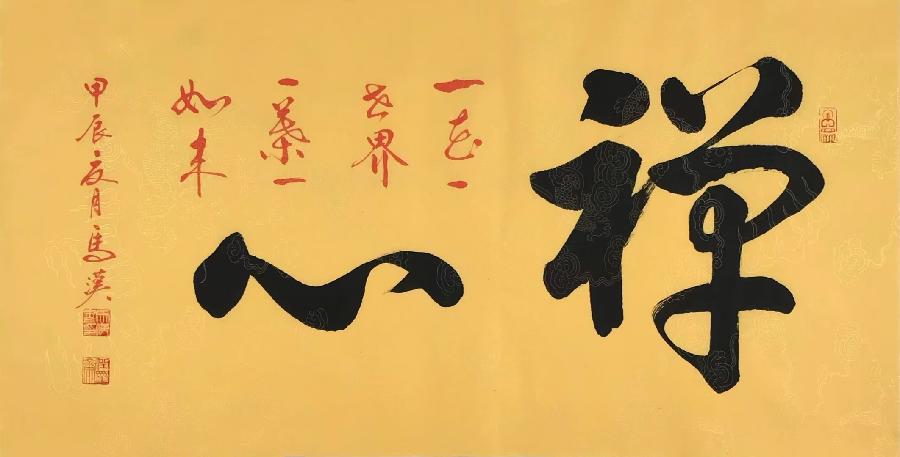 禅心
一花一
世界
一葉一
如来
甲辰夏月馬漢